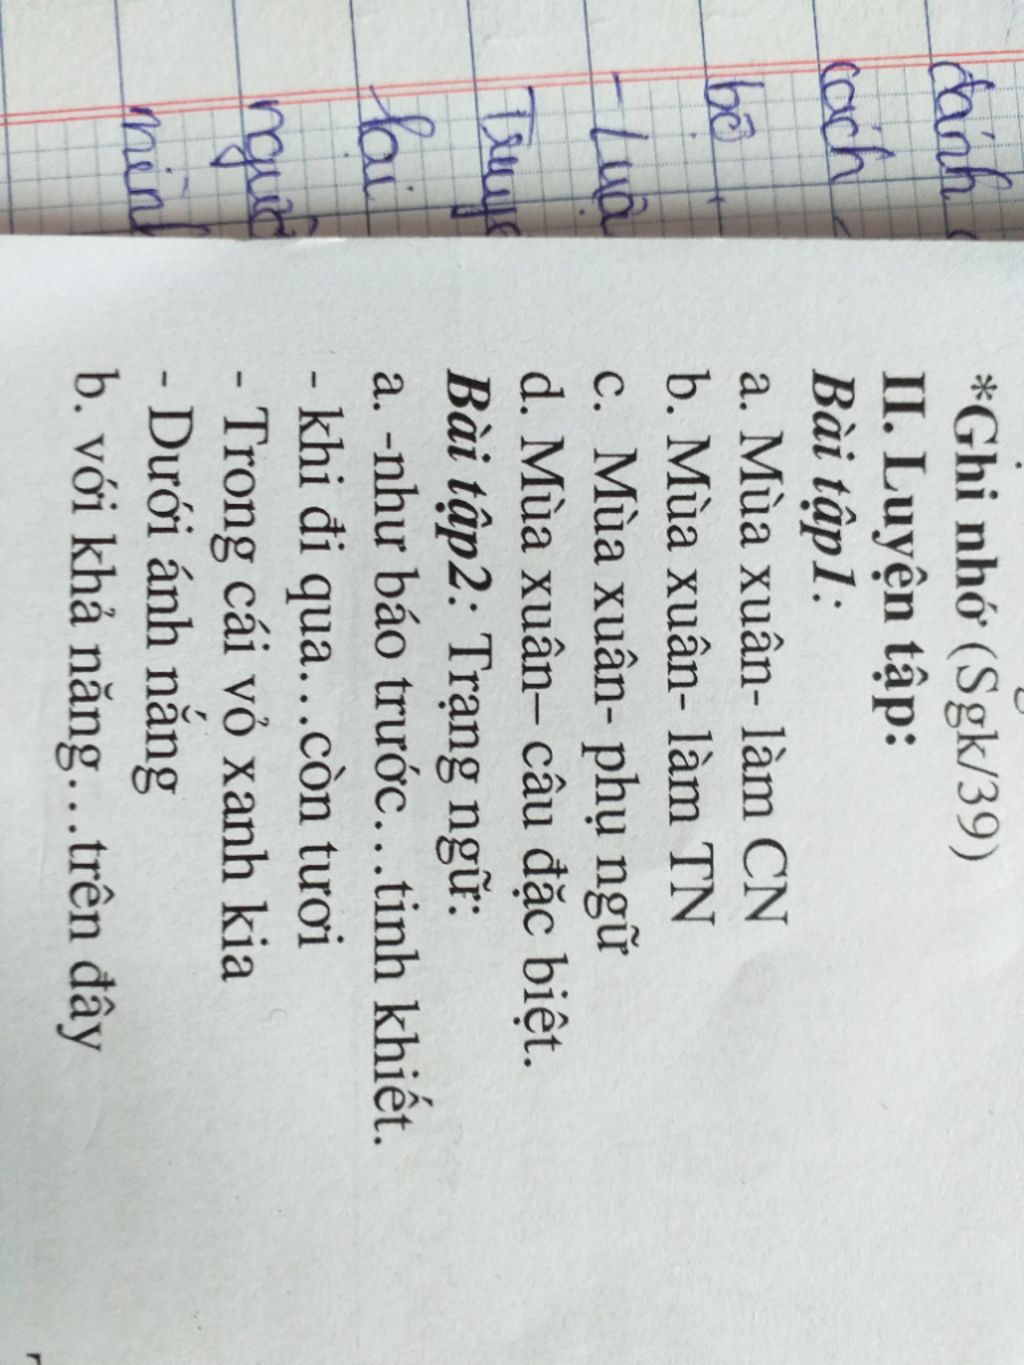 *Ghi nhớ (Sgk/39)
II. Luyện tập:
Bài tập1:
a. Mùa xuân- làm CN
b. Mùa xuân- làm TN
c. Mùa xuân- phụ ngữ
d. Mùa xuân– câu đặc biệt.
Bài tập2: Trạng ngữ:
a. -như báo trước…tinh khiết.
- khi đi qua…còn tươi
- Trong cái vỏ xanh kia
- Dưới ánh nắng
b. với khả năng…trên đây
đánh
cách
bộ
- Luậ
Truyệ
lại
ngườ